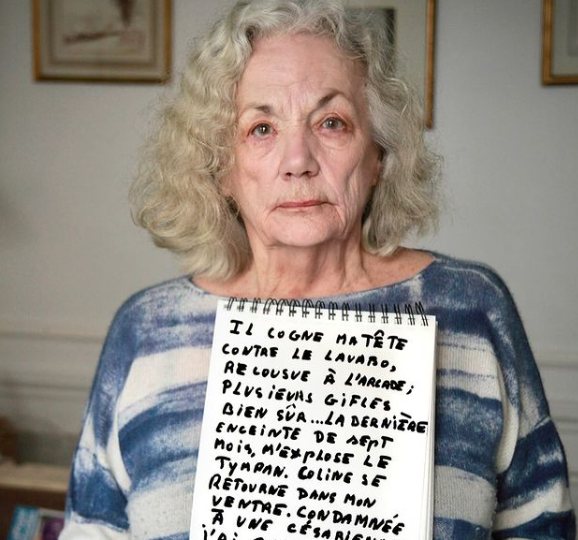 IL COGNE MA TÊTE
CONTRE LE LAVABO,
RECOUSUE À L'ARCADE;
PLUSIEURS GIFLES
BIEN SÛR...LA DERNIÈRE
ENCEINTE DE SEPT
MOIS, M'EXPLOSE LE
TYMPAN. COLINE SE
RETOURNE DANS MON
VENTRE. CONDAMNÉE
À UNE CÉSARIENNE
J'AI